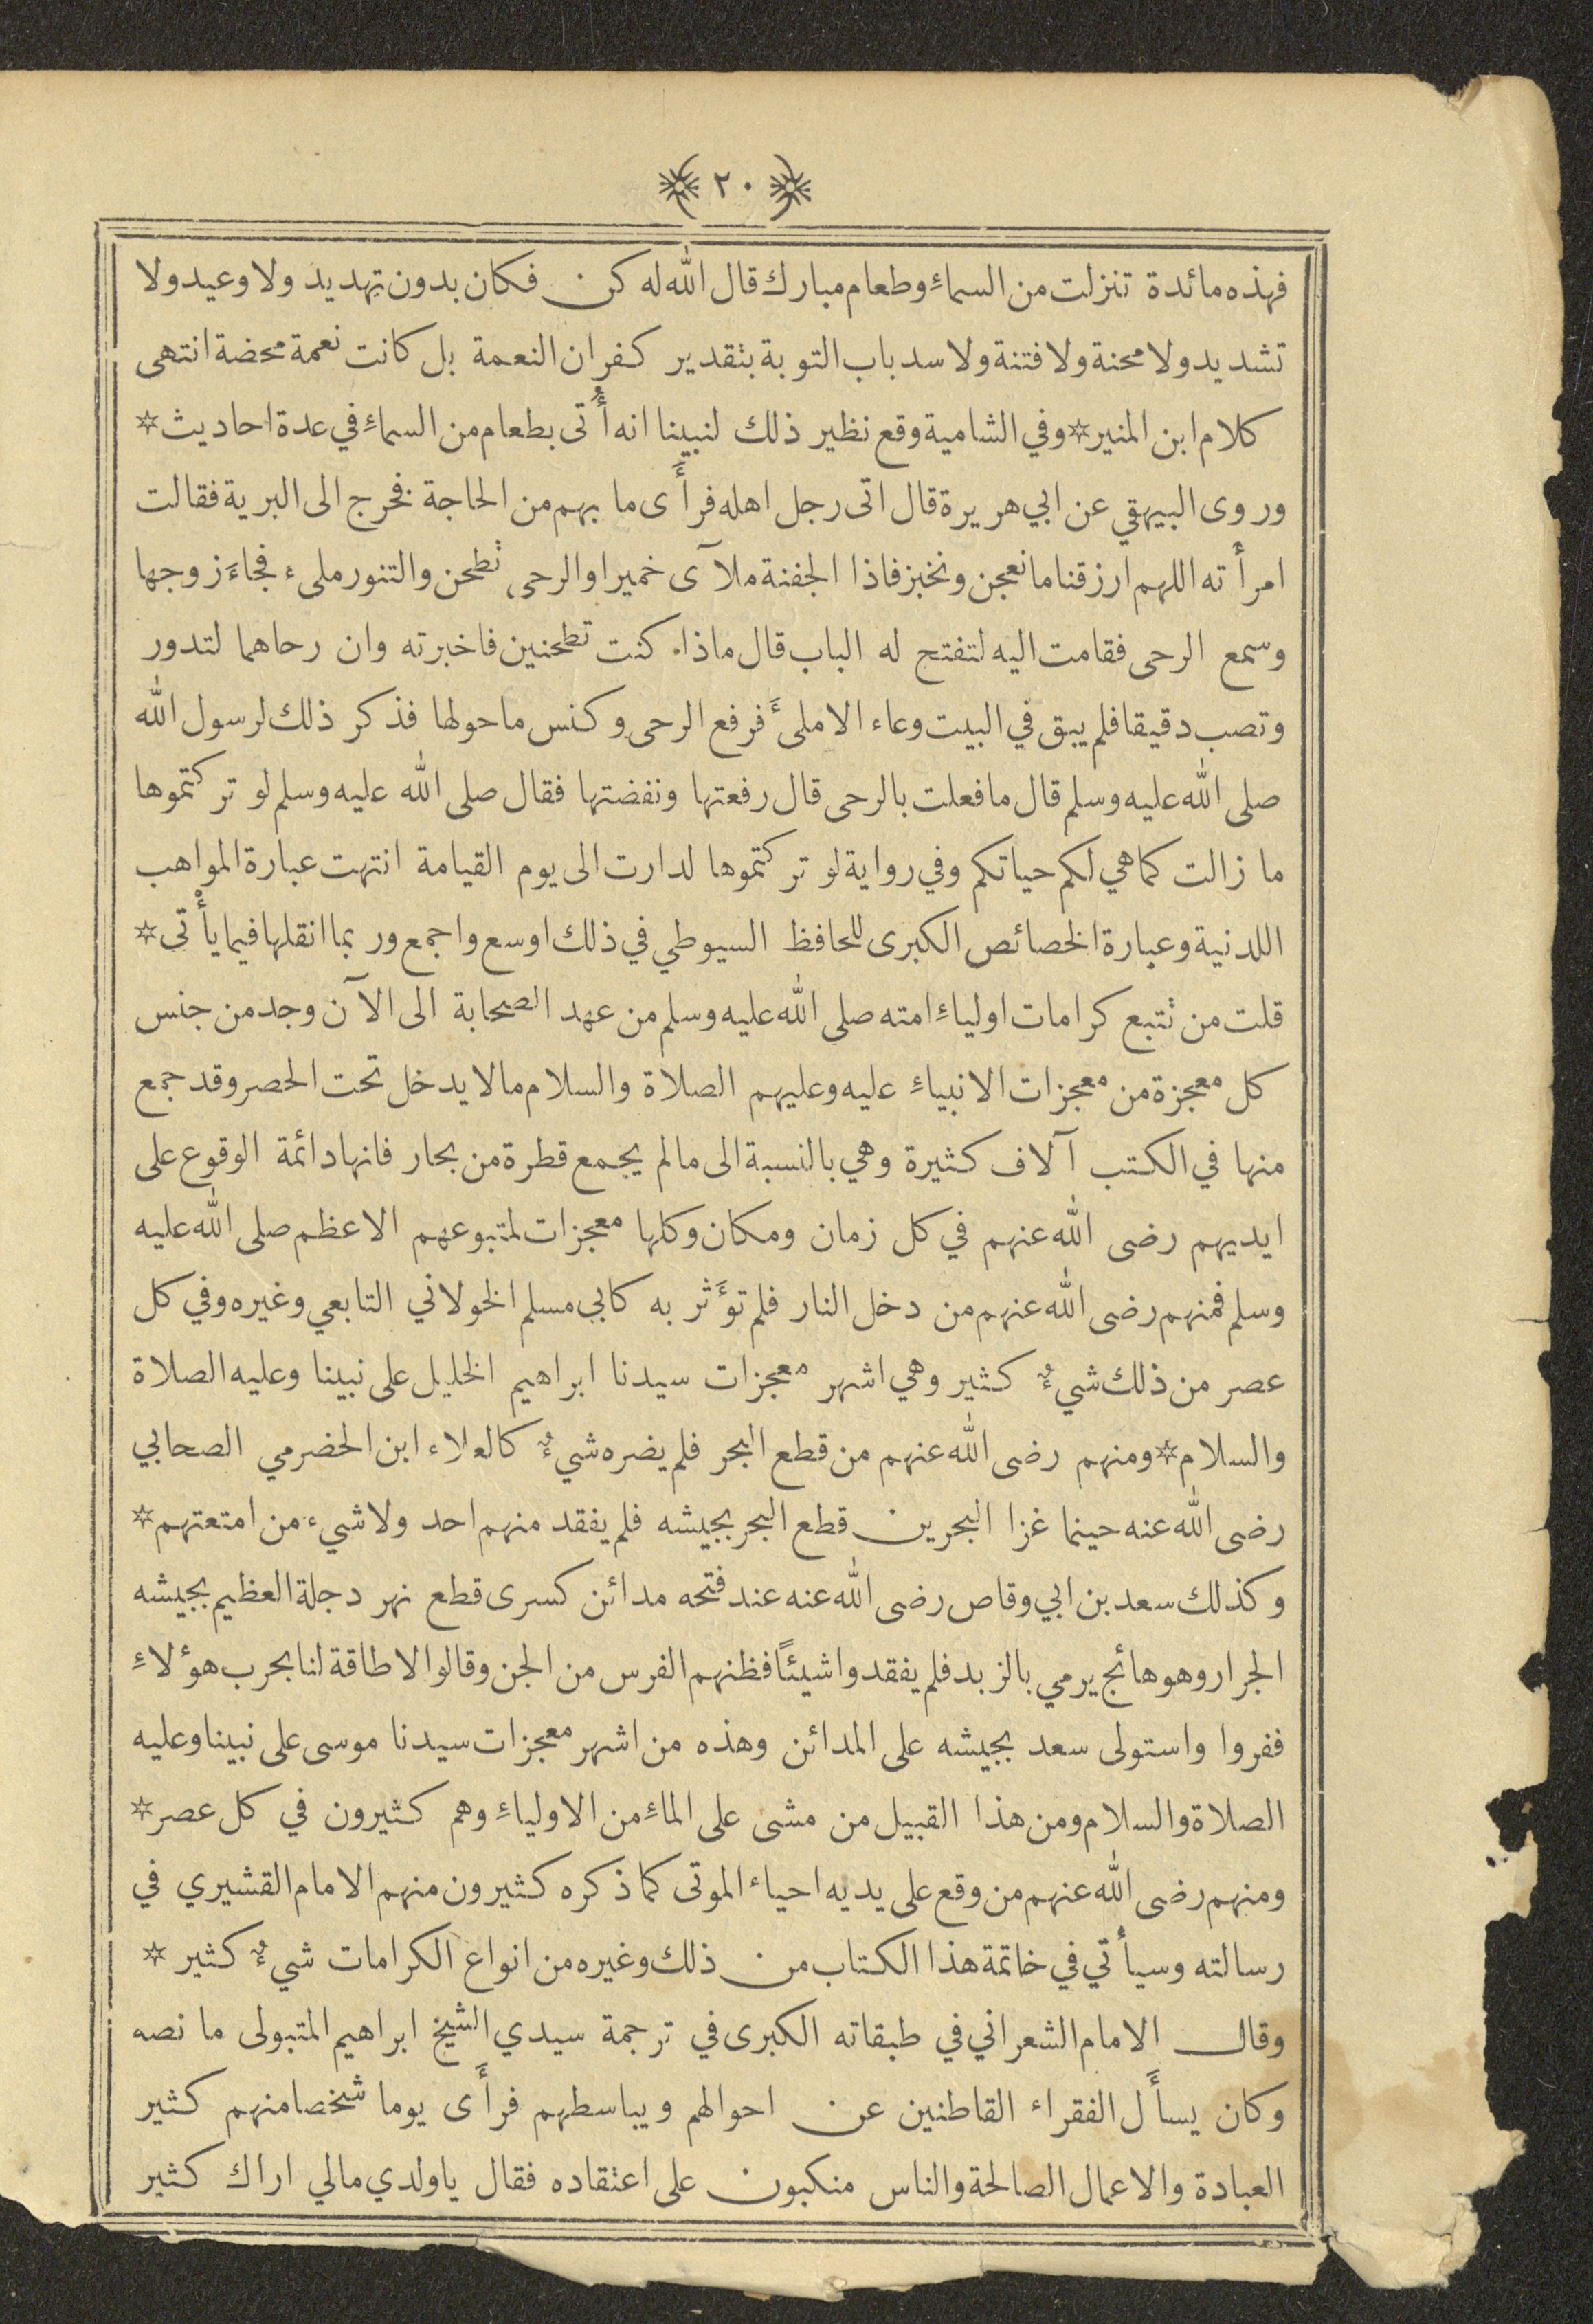 ٢٠
فهذه مائدة تنزلت من السماءِ وطعام مبارك قال الله له كن فكان بدون تهديد ولا وعيد ولا
تشديد ولا محنة ولا فتنة ولا سد باب التوبة بتقدير كفران النعمة بل كانت نعمة محضة انتهى
كلام ابن المنير * وفي الشامية وقع نظير ذلك لنبينا انه أُتى بطعام من السماءِ في عدة احاديث *
وروى البيهقي عن ابي هريرة قال اتى رجل اهله فرأَى ما بهم من الحاجة فخرج الى البرية فقالت
امرأته اللهم ارزقنا ما نعجن ونخبز فاذا الجفنة ملآى خميرا والرحى تطحن والتنور ملىء فجاءَ زوجها
وسمع الرحى فقامت اليه لتفتح له الباب قال ماذا كنت تطحنين فاخبرته وان رحاهما لتدور
وتصب دقيقا فلم يبق في البيت وعاء الا ملئَ فرفع الرحى وكنس ما حولها فذكر ذلك لرسول الله
صلى الله عليه وسلم قال ما فعلت بالرحى قال رفعتها ونفضتها فقال صلى الله عليه وسلم لو تركتموها
ما زالت كما هي لكم حياتكم وفي رواية لو تركتموها لدارت الى يوم القيامة انتهت عبارة المواهب
اللدنية وعبارة الخصائص الكبرى للحافظ السيوطي في ذلك اوسع واجمع وربما انقلها فيما يأْتى *
قلت من تتبع كرامات اولياءِ امته صلى الله عليه وسلم من عهد الصحابة الى الآن وجد من جنس
كل معجزة من معجزات الانبياءِ عليه وعليهم الصلاة والسلام ما لا يدخل تحت الحصر وقد جمع
منها في الكتب آلاف كثيرة وهي بالنسبة الى ما لم يجمع قطرة من بحار فانها دائمة الوقوع على
ايديهم رضى الله عنهم في كل زمان ومكان وكلها معجزات لمتبوعهم الاعظم صلى الله عليه
وسلم فمنهم رضى الله عنهم من دخل النار فلم تؤَثر به كابي مسلم الخولاني التابعي وغيره وفي كل
عصر من ذلك شيءٌ كثير وهي اشهر معجزات سيدنا ابراهيم الخليل على نبينا وعليه الصلاة
والسلام * ومنهم رضى الله عنهم من قطع البحر فلم يضره شيءٌ كالعلاء ابن الحضرمي الصحابي
رضى الله عنه حينما غزا البحرين قطع البحر بجيشه فلم يفقد منهم احد ولا شيء من امتعتهم *
وكذلك سعد بن ابي وقاص رضى الله عنه عند فتحه مدائن كسرى قطع نهر دجلة العظيم بجيشه
الجرار وهو هائج يرمي بالزبد فلم يفقدوا شيئًا فظنهم الفرس من الجن وقالوا لا طاقة لنا بحرب هؤلاءِ
ففروا واستولى سعد بجيشه على المدائن وهذه من اشهر معجزات سيدنا موسى على نبينا وعليه
الصلاة والسلام ومن هذا القبيل من مشى على الماءِ من الاولياءِ وهم كثيرون في كل عصر *
ومنهم رضى الله عنهم من وقع على يديه احياء الموتى كما ذكره كثيرون منهم الامام القشيري في
رسالته وسيأتي في خاتمة هذا الكتاب من ذلك وغيره من انواع الكرامات شيءٌ كثير *
وقال الامام الشعراني في طبقاته الكبرى في ترجمة سيدي الشيخ ابراهيم المتبولى ما نصه
وكان يسأَل الفقراء القاطنين عن احوالهم ويباسطهم فرأَى يوما شخصا منهم كثير
العبادة والاعمال الصالحة والناس منكبون على اعتقاده فقال يا ولدي مالي اراك كثير